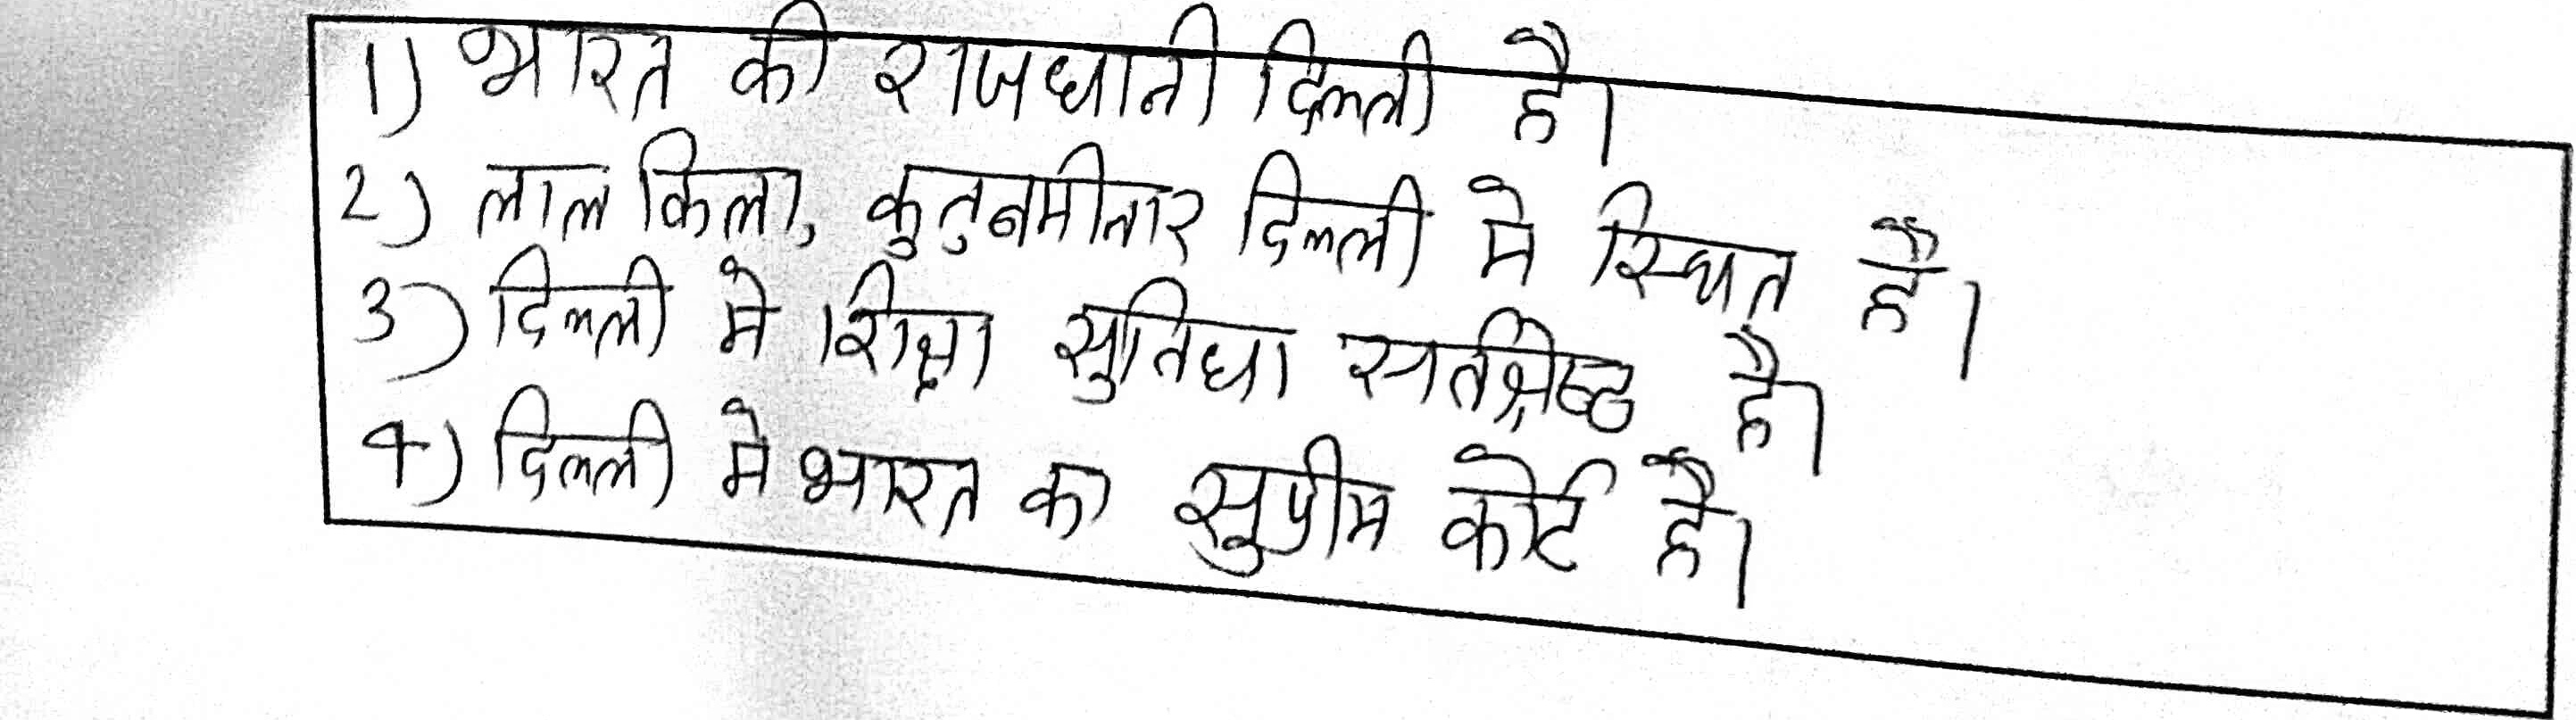 1) भारत की राजधानी दिल्ली है।
2) लाल किला, कुतुबमीनार दिल्ली मे स्थित है।
3) दिल्ली मे शिक्षा सुविधा सर्वश्रेष्ठ है।
4) दिल्ली मे भारत का सुप्रीम कोर्ट है।